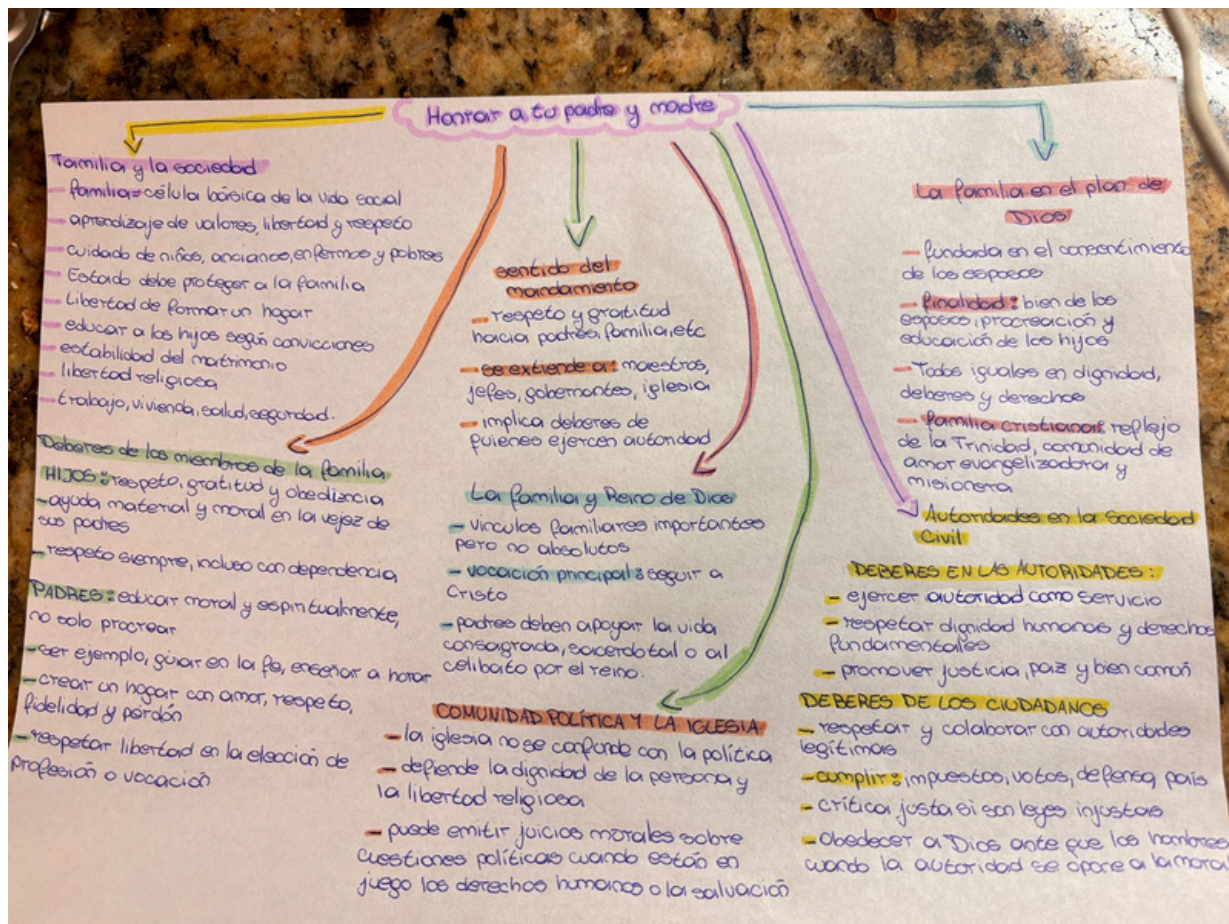 Honrar a tu padre y madre
Familia y la sociedad
- familia= célula básica de la vida social
- aprendizaje de valores, libertad y respeto
- cuidado de niños, ancianos, enfermos y pobres
- Estado debe proteger a la familia
- Libertad de formar un hogar
- educar a los hijos según convicciones
- estabilidad del matrimonio
- libertad religiosa
- trabajo, vivienda, salud, seguridad.
Deberes de los miembros de la familia
HIJOS: respeto, gratitud y obediencia
- ayuda material y moral en la vejez de
sus padres
- respeto siempre, incluso con dependencia
PADRES: educar moral y espiritualmente,
no solo procrear
- ser ejemplo, guiar en la fe, enseñar a
- crear un hogar con amor, respeto,
fidelidad y perdón
- respetar libertad en la elección de
profesión o vocación
sentido del
mandamiento
- respeto y gratitud
hacia padres, familia, etc
- se extiende a: maestros,
jefes, gobernantes, iglesia
- implica deberes de
quienes ejercen autoridad
La familia y Reino de Dios
- vinculos familiares importantes
pero no absolutos
- vocación principal: seguir a
Cristo
- padres deben apoyar la vida
consagrada, sacerdotal o al
celibato por el reino.
COMUNIDAD POLÍTICA Y LA IGLESIA
- la iglesia no se confunde con la política
- defiende la dignidad de la persona y
la libertad religiosa
- puede emitir juicios morales sobre
cuestiones políticas cuando están en
juego los derechos humanos o la salvación
La familia en el plan de
Dios
- fundada en el consentimiento
de los esposos
- finalidad: bien de los
esposos, procreación y
educación de los hijos
- Todos iguales en dignidad,
deberes y derechos
- familia cristiana: reflejo
de la Trinidad, comunidad de
amor evangelizadora y
misionera
Autoridades en la Sociedad
Civil
DEBERES EN LAS AUTORIDADES:
- ejercer autoridad como servicio
- respetar dignidad humana y derechos
fundamentales
- promover justicia, paz y bien común
DEBERES DE LOS CIUDADANOS
- respetar y colaborar con autoridades
legítimas
- cumplir: impuestos, votos, defensa país
- crítica justa si son leyes injustas
- Obedecer a Dios ante que los hombres
cuando la autoridad se opone a la moral